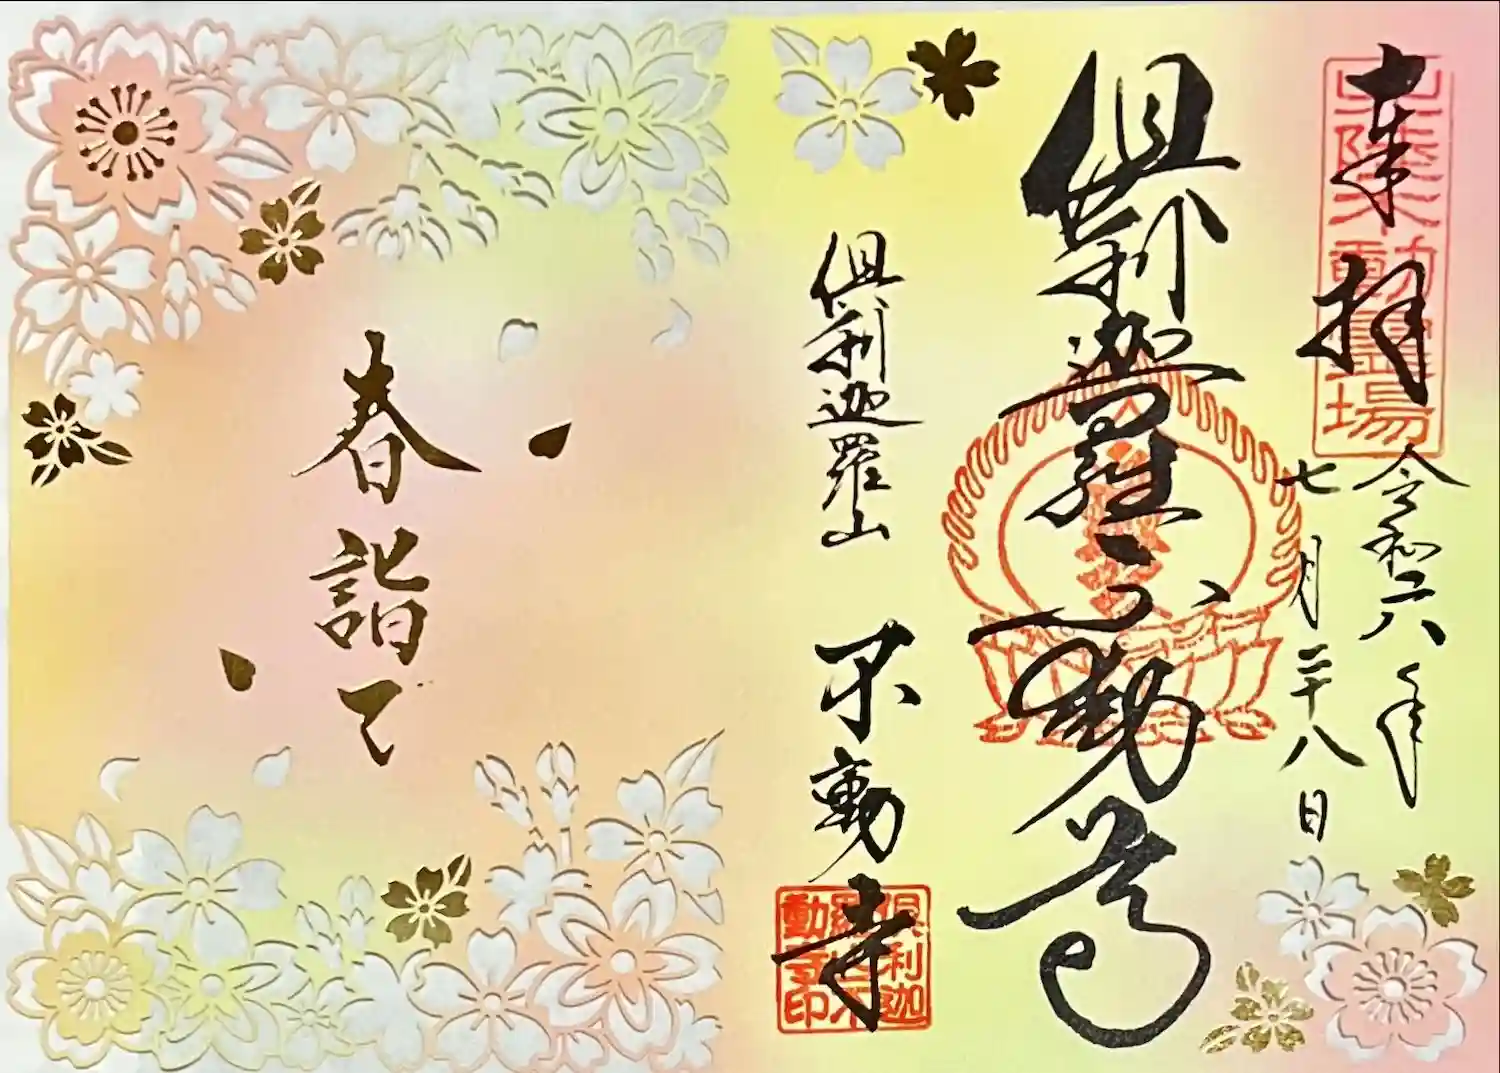 奉拝
北陸不動霊場
令和六年
七月二十八日
倶利迦羅不動尊
倶利迦羅山 不動寺
倶利迦
羅山不
動寺印
春詣で